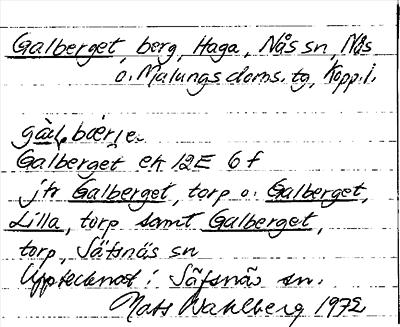 Galberget, berg, Haga, Nås sn, Nås
o. Malungs doms. tg, Kopp. l.
Galberget ek 12E 6f
jfr Galberget, torp o. Galberget,
Lilla, torp samt Galberget,
torp, Säfsnäs sn
Upptecknat i Säfsnäs sn.
Mats Wahlberg 1972